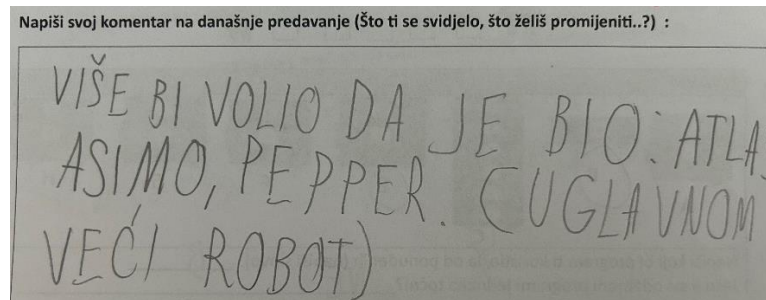 Napiši svoj komentar na današnje predavanje (Što ti se svidjelo, što želiš promijeniti..?) :
VIŠE BI VOLIO DA JE BIO: ATLA
ASIMO, PEPPER. (UGLAVNOM
VEĆI ROBOT)